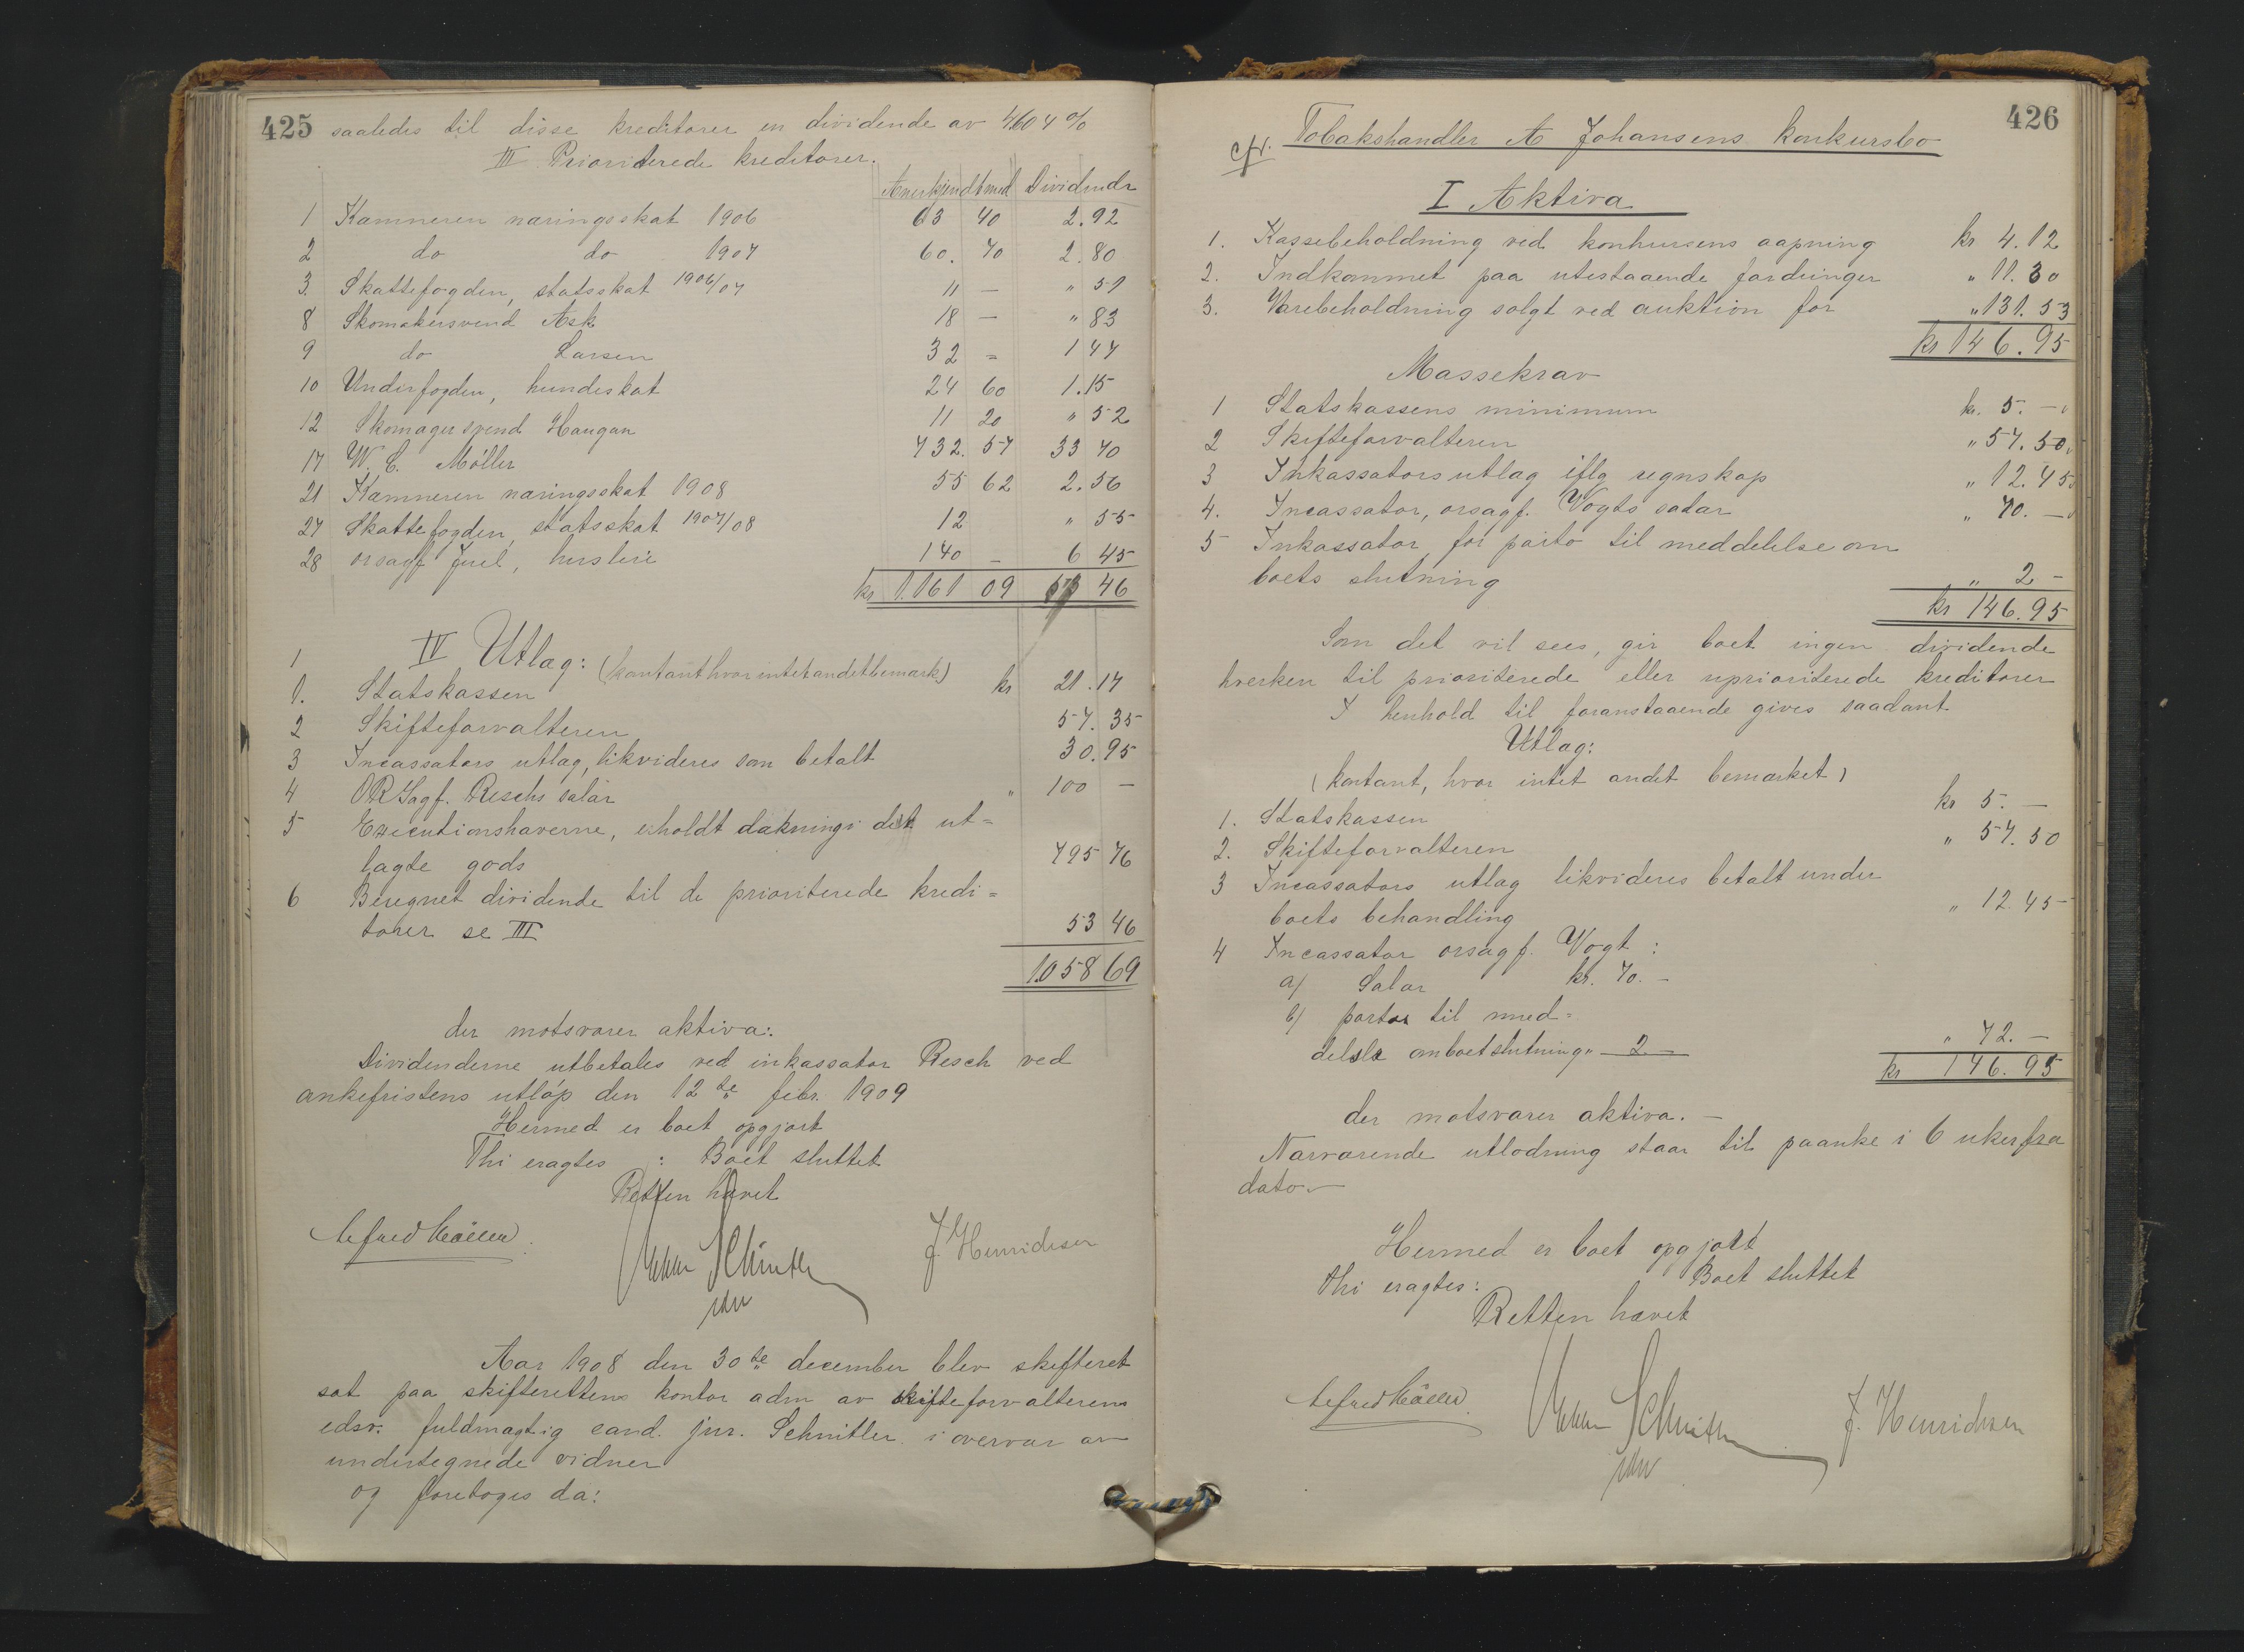 425 saaledes til disse kreditorer en dividende av 4604 %
III Prioriterede kreditorer.
Anerkjendt med Dividende
1 Kæmneren næringsskat 1906 63 40 2.92
2 do do 1907 60. 70 2.80
3. Skattefogden, statsskat 1906/07 11 — " 51
8 Skomakersvend Ask 18 — " 83
9 do Larsen 32 = 1 47
10 Underfogden, hundeskat 24 60 1.15
12 Skomagersvend Haugan 11 20 " 52
17 W. C. Möller 732. 57 33 70
21 Kæmneren næringsskat 1908 55 62 2.56
27 Skattefogden, statsskat 1907/08 12 " 55
28 orsagf Juel, husleie 140 — 6 45
kr 1.061 09 53 46
1 IV Utlæg: (kontant hvor intet andet bemærk)
1. Statskassen kr 21.17
2 Skifteforvalteren 57.35
3 Incassators utlæg, likvideres som betalt 30.95
4 ORSagf. Reschs salær " 100 —
5 Executionshaverne, erholdt dækning i det ut=
lagte gods 795 76
6 Beregnet dividende til de prioriterede kredi=
torer se III 53 46
1.058 69
der motsvarer aktiva:
Dividenderne utbetales ved inkassator Resch ved
ankefristens utløp den 12te febr. 1909
Hermed er boet opgjort
Thi eragtes : Boet sluttet
Retten hævet
Alfred Möller Schnitler J Henrichsen
Aar 1908 den 30te december blev skifteret
sat paa skifterettens kontor adm av skifteforvalterens
edsv. fuldmægtig cand. jur. Schnitler i overvær av
undertegnede vidner
og foretoges da:
426
cfr. Tobakshandler A Johansens konkursbo
I Aktiva
1. Kassebeholdning ved konkursens aapning kr 4.12
2. Indkommet paa utestaaende fordringer " 11.30
3. Varebeholdning solgt ved auktion for " 131.53
kr 146.95
Massekrav
1 Statskassens minimum kr. 5. —
2 Skifteforvalteren " 57.50
3 Inkassators utlæg iflg regnskap " 12.45
4. Incassator, orsagf. Vogts salær " 70. —
5 Inkassator for porto til meddelelse om
boets slutning " 2 —
kr 146.95
Som det vil sees, gir boet ingen dividende
hverken til prioriterede eller uprioriterede kreditorer
I henhold til foranstaaende gives saadant
Utlæg:
(kontant, hvor intet andet bemærket)
1. Statskassen kr 5. —
2. Skifteforvalteren " 57.50
3 Incassators utlæg likvideres betalt under
boets behandling " 12.45
4 Incassator orsagf. Vogt :
a) Salær kr. 70. —
b) porto til med=
delelse om boets slutning " 2 — " 72. —
kr 146.95
der motsvarer aktiva. —
Nærværende utlodning staar til paaanke i 6 uker fra
dato. —
Hermed er boet opgjort
thi eragtes: Boet sluttet
Retten hævet
Alfred Möller Schnitler J. Henrichsen